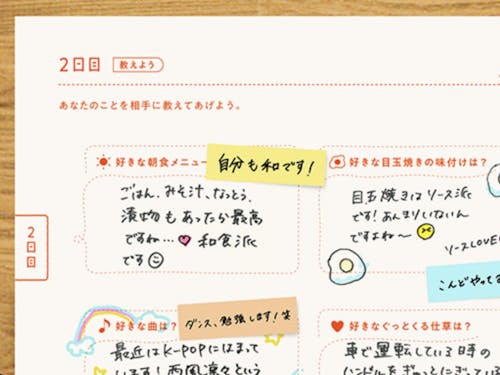 2日目 教えよう
あなたのことを相手に教えてあげよう。
好きな朝食メニュー
自分も和です!
ごはん、みそ汁、なっとう、
漬物もあったか最高
ですね…♥和食派
です☺
好きな目玉焼きの味付けは?
目玉焼きはソース派
です!あんまりいないん
ですよね〜
ソースLOVE
こんどやって
2日目
好きな曲は?
ダンス、勉強します!笑
最近はK-POPにはまって
います!西風凛々という
好きなぐっとくる仕草は?
車で運転している時の
ハンドルをぎゅっとにぎっている